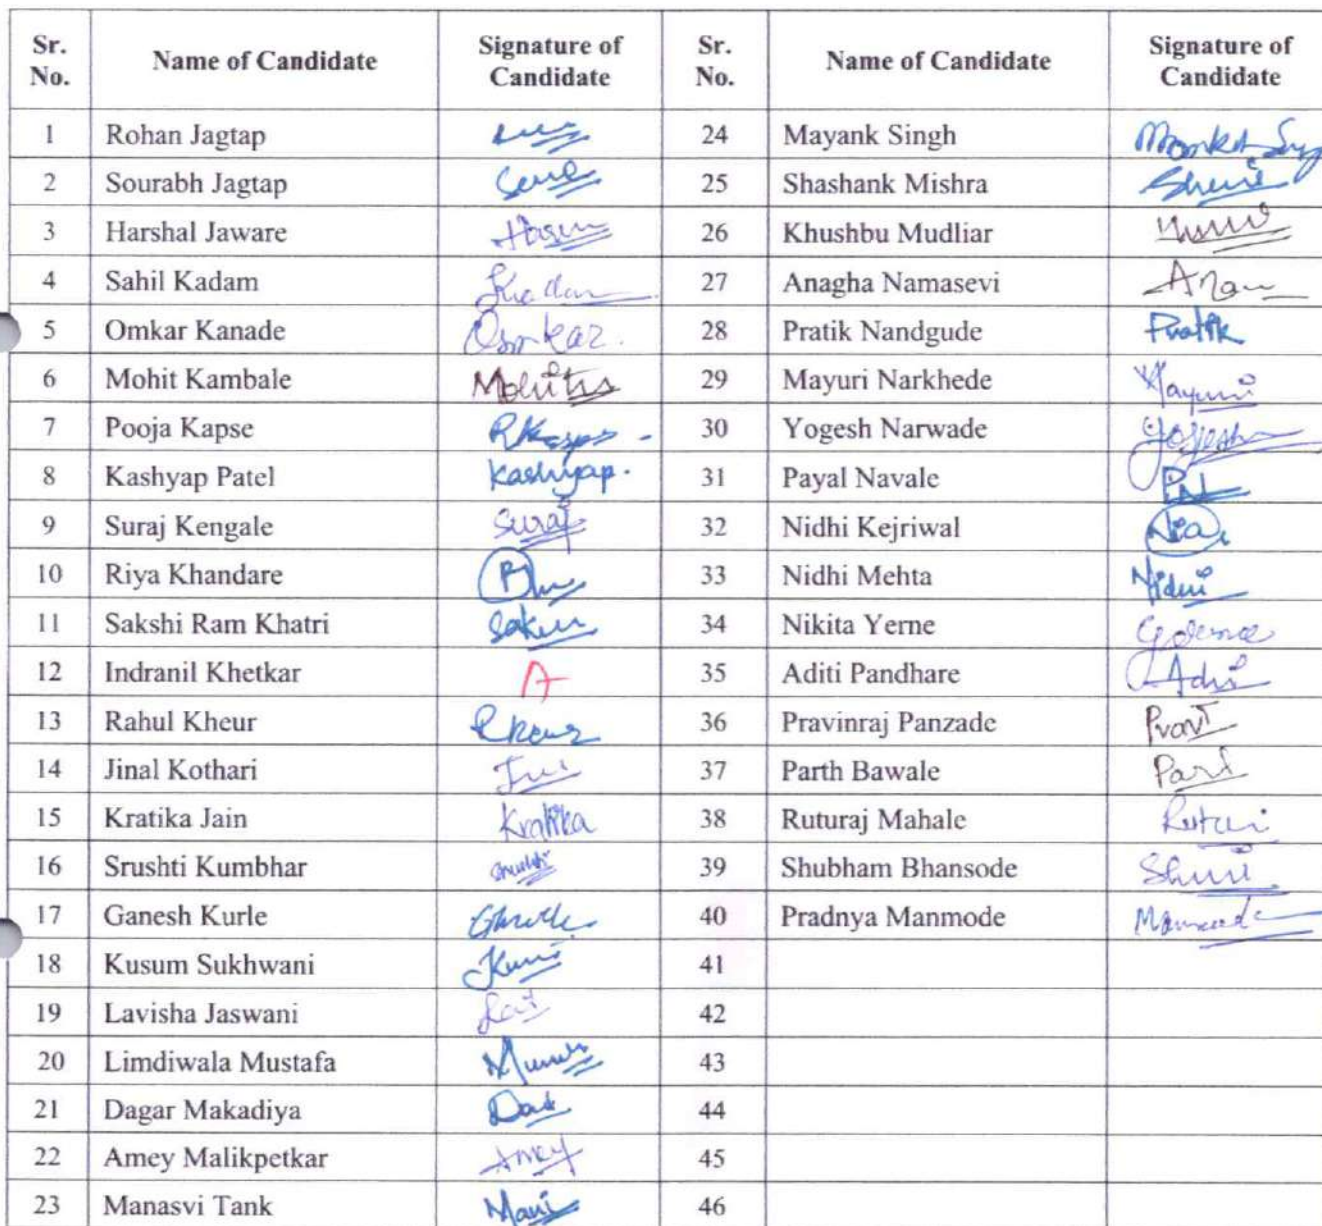 Sr. No. Name of Candidate Signature of Candidate Sr. No. Name of Candidate Signature of Candidate
1 Rohan Jagtap 24 Mayank Singh
2 Sourabh Jagtap 25 Shashank Mishra
3 Harshal Jaware 26 Khushbu Mudliar
4 Sahil Kadam 27 Anagha Namasevi
5 Omkar Kanade Omkar. 28 Pratik Nandgude Pratik
6 Mohit Kambale 29 Mayuri Narkhede Mayuri
7 Pooja Kapse 30 Yogesh Narwade Yogesh
8 Kashyap Patel Kashyap. 31 Payal Navale PN
9 Suraj Kengale Suraj 32 Nidhi Kejriwal
10 Riya Khandare 33 Nidhi Mehta Nidhi
11 Sakshi Ram Khatri 34 Nikita Yerne
12 Indranil Khetkar A 35 Aditi Pandhare
13 Rahul Kheur 36 Pravinraj Panzade
14 Jinal Kothari 37 Parth Bawale
15 Kratika Jain Kratika 38 Ruturaj Mahale
16 Srushti Kumbhar 39 Shubham Bhansode
17 Ganesh Kurle 40 Pradnya Manmode
18 Kusum Sukhwani 41
19 Lavisha Jaswani 42
20 Limdiwala Mustafa 43
21 Dagar Makadiya 44
22 Amey Malikpetkar Amey 45
23 Manasvi Tank 46